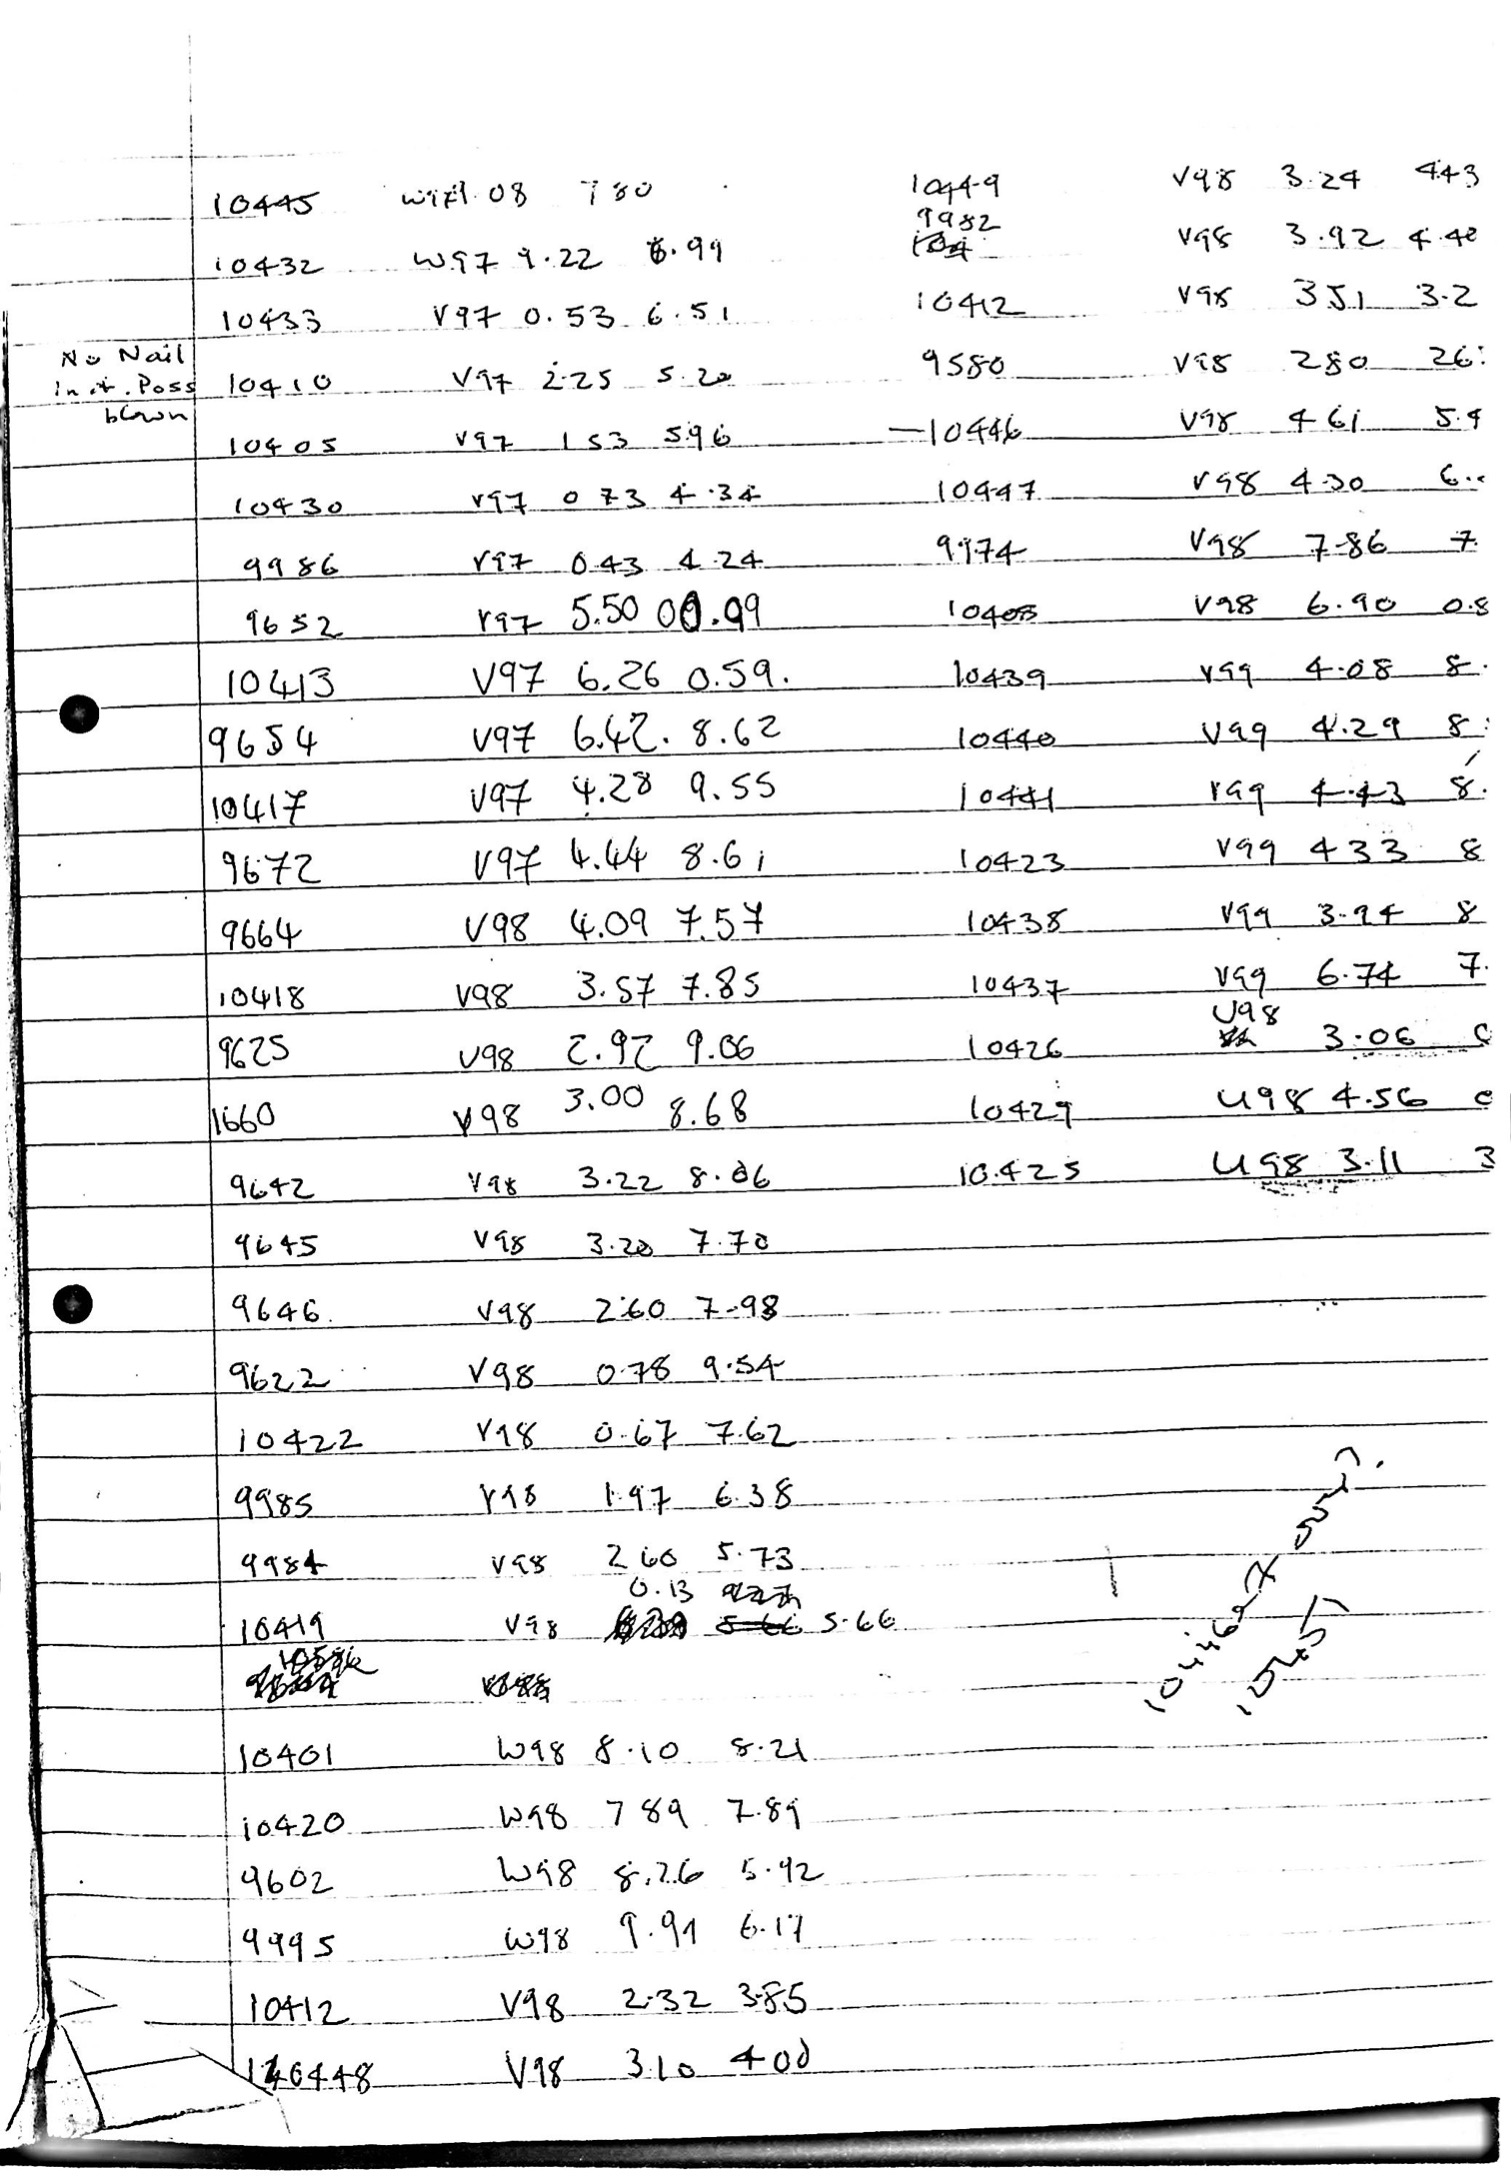 10445 W97 1.08 7 80
10432 W97 9.22 6.99
10433 V97 0.53 6.51
No Nail
in it. Poss
blown
10410 V97 2.25 5.20
10405 V97 1 53 5.96
10430 V97 0 73 4.34
9986 V97 0.43 4.24
9652 V97 5.50 00.99
10413 V97 6.26 0.59.
9654 V97 6.42. 8.62
10417 V97 4.28 9.55
9672 V97 4.44 8.61
9664 V98 4.09 7.57
10418 V98 3.57 7.85
9625 V98 2.92 9.06
1660 V98 3.00 8.68
9642 V98 3.22 8.06
9645 V98 3.20 7.70
9646 V98 2.60 7.98
9622 V98 0.78 9.54
10422 V98 0.67 7.62
9985 V98 1.97 6.38
9984 V98 2 60 5.73
0.13
10419 V98 5.66 5.66
10401 W98 8.10 8.21
10420 W98 7 89 7.89
9602 W98 8.26 5.92
9995 W98 9.91 6.17
10412 V98 2.32 3.85
10448 V98 3.10 4 00
10449 V98 3.24 4.43
9982 V98 3.92 4.40
10412 V98 3 51 3.2
9580 V98 2 80 26
—10446 V98 4 61 5.9
10447 V98 4.30 6
9974 V98 7.86 7
10403 V98 6.90 0.8
10439 V99 4.08 8.
10440 V99 4.29 8
10441 V99 4.43 8.
10423 V99 4 33 8
10438 V99 3.94 8
10437 V99 6.74 7.
U98
10426 3.06
10429 U98 4.56
10.425 U98 3.11 3